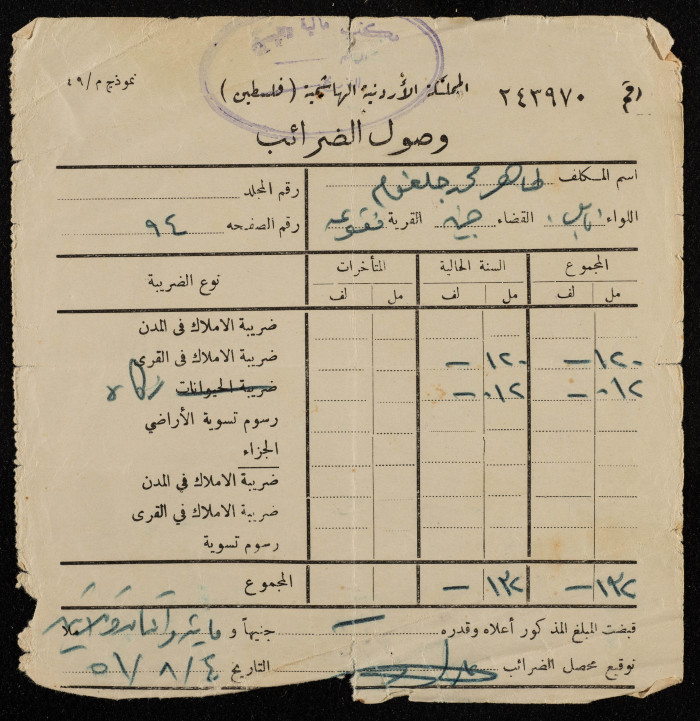 رقم ٢٤٣٩٧٠ المملكة الأردنية الهاشمية ( فلسطين ) نموذج م/٤٩
وصول الضرائب
اسم المكلف طاهر محمد رقم المجلد
اللواء نابلس القضاء جنين القرية فقوعه رقم الصفحه ٩٤
المجموع السنة الحالية المتأخرات نوع الضريبة
مل لف مل لف مل لف
ضريبة الاملاك فى المدن
١٢٠ – ١٢٠ – ضريبة الاملاك فى القرى
٠١٢ – ٠١٢ – ضريبة الحيوانات زكاه
رسوم تسوية الأراضي
الجزاء
ضريبة الاملاك في المدن
ضريبة الاملاك في القرى
رسوم تسوية
١٣٢ – ١٣٢ – المجموع
قبضت المبلغ المذكور أعلاه وقدره – جنيهاً و ملا
توقيع محصل الضرائب التاريخ ٤/٨/٥١